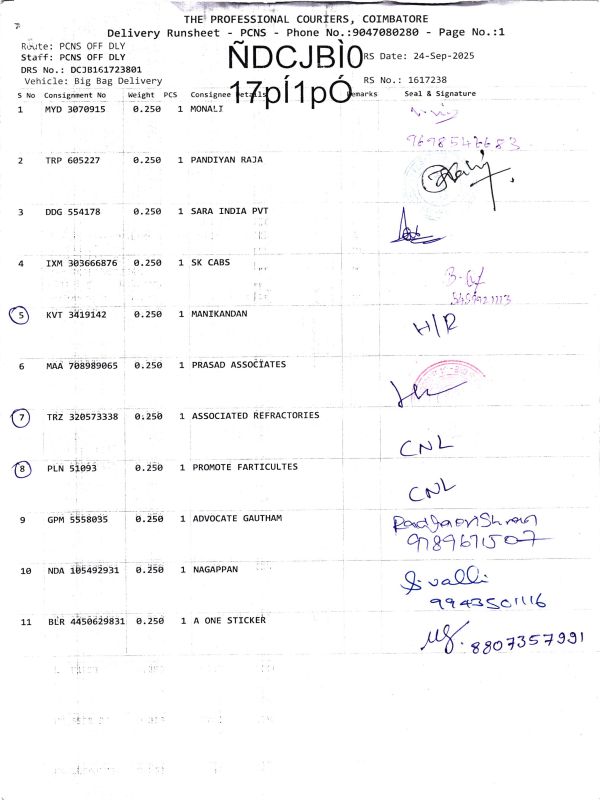 THE PROFESSIONAL COURIERS, COIMBATORE
Delivery Runsheet - PCNS - Phone No.:9047080280 - Page No.:1
Route: PCNS OFF DLY
Staff: PCNS OFF DLY
ÑDCJBÌ0
RS Date: 24-Sep-2025
DRS No.: DCJB161723801
Vehicle: Big Bag Delivery
17pÍ1pÓ
RS No.: 1617238
S No Consignment No Weight PCS Consignee Details Remarks Seal & Signature
1 MYD 3070915 0.250 1 MONALI
2 TRP 605227 0.250 1 PANDIYAN RAJA
3 DDG 554178 0.250 1 SARA INDIA PVT
4 IXM 303666876 0.250 1 SK CABS
5 KVT 3419142 0.250 1 MANIKANDAN H/R
6 MAA 708989065 0.250 1 PRASAD ASSOCIATES
7 TRZ 320573338 0.250 1 ASSOCIATED REFRACTORIES
CNL
8 PLN 51093 0.250 1 PROMOTE FARTICULTES
CNL
9 GPM 5558035 0.250 1 ADVOCATE GAUTHAM
9789671507
10 NDA 105492931 0.250 1 NAGAPPAN
Sivalli
9943501116
11 BLR 4450629831 0.250 1 A ONE STICKER
8807357991